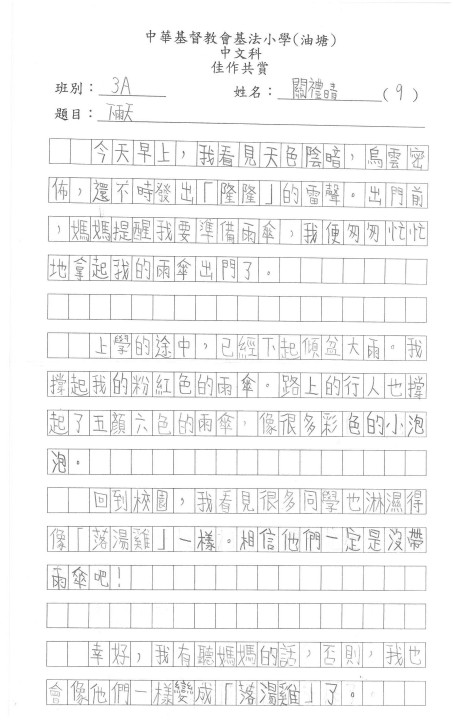 中華基督教會基法小學(油塘)
中文科
佳作共賞
班別：3A 姓名：關禮晴(9)
題目：下雨天
今天早上，我看見天色陰暗，烏雲密
佈，還不時發出「隆隆」的雷聲。出門前
，媽媽提醒我要準備雨傘，我便匆匆忙忙
地拿起我的雨傘出門了。
上學的途中，已經下起傾盆大雨。我
撐起我的粉紅色的雨傘。路上的行人也撐
起了五顏六色的雨傘，像很多彩色的小泡
泡。
回到校園，我看見很多同學也淋濕得
像「落湯雞」一樣。相信他們一定是沒帶
雨傘吧！
幸好，我有聽媽媽的話，否則，我也
會像他們一樣變成「落湯雞」了。